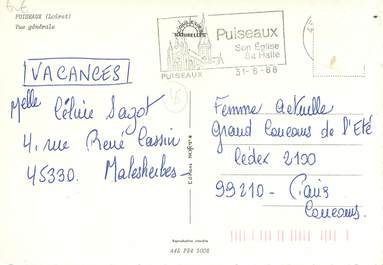 PUISEAUX (Loiret)
Vue générale
NATURELLES
Puiseaux
Son Église
Sa Halle
PUISEAUX
31-8-88
VACANCES
Melle Céline Sagot
4, rue René Cassin
45330. Malesherbes
Femme Actuelle
Grand Concours de l'Eté
Cédex 2100
99210 - Paris
Concours.
Reproduction interdite
A45 P84 5008